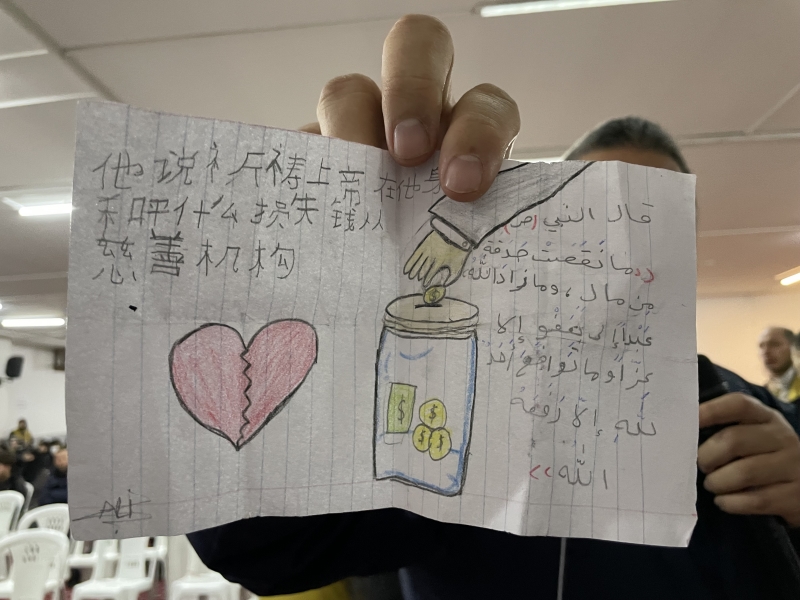 他说祈祷上帝 在他身
和呯什么损失 钱从
慈善机构
قال النبي (ص)
((ما نَقَصَتْ صَدَقَة
مِن مال، وما زادَ اللَّه
عَبْداً بِعَفْوٍ إلا
عِزّاً وما تَواضَعَ أَحَدٌ
للهِ إلَّا رَفَعَهُ
اللَّه))
$
$
$
$ $
ALi